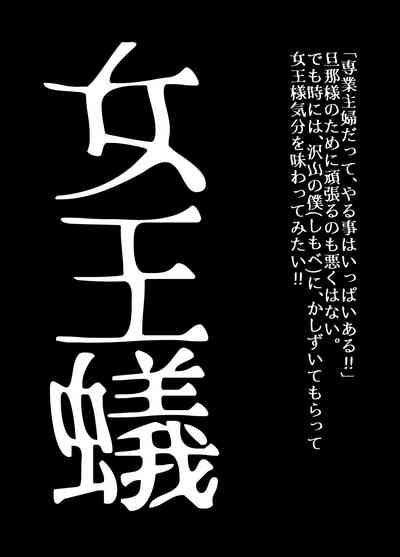 「専業主婦だって、やる事はいっぱいある!!」
旦那様のために頑張るのも悪くはない。
でも時には、沢山の僕(しもべ)に、かしずいてもらって
女王様気分を味わってみたい!!
女王蟻